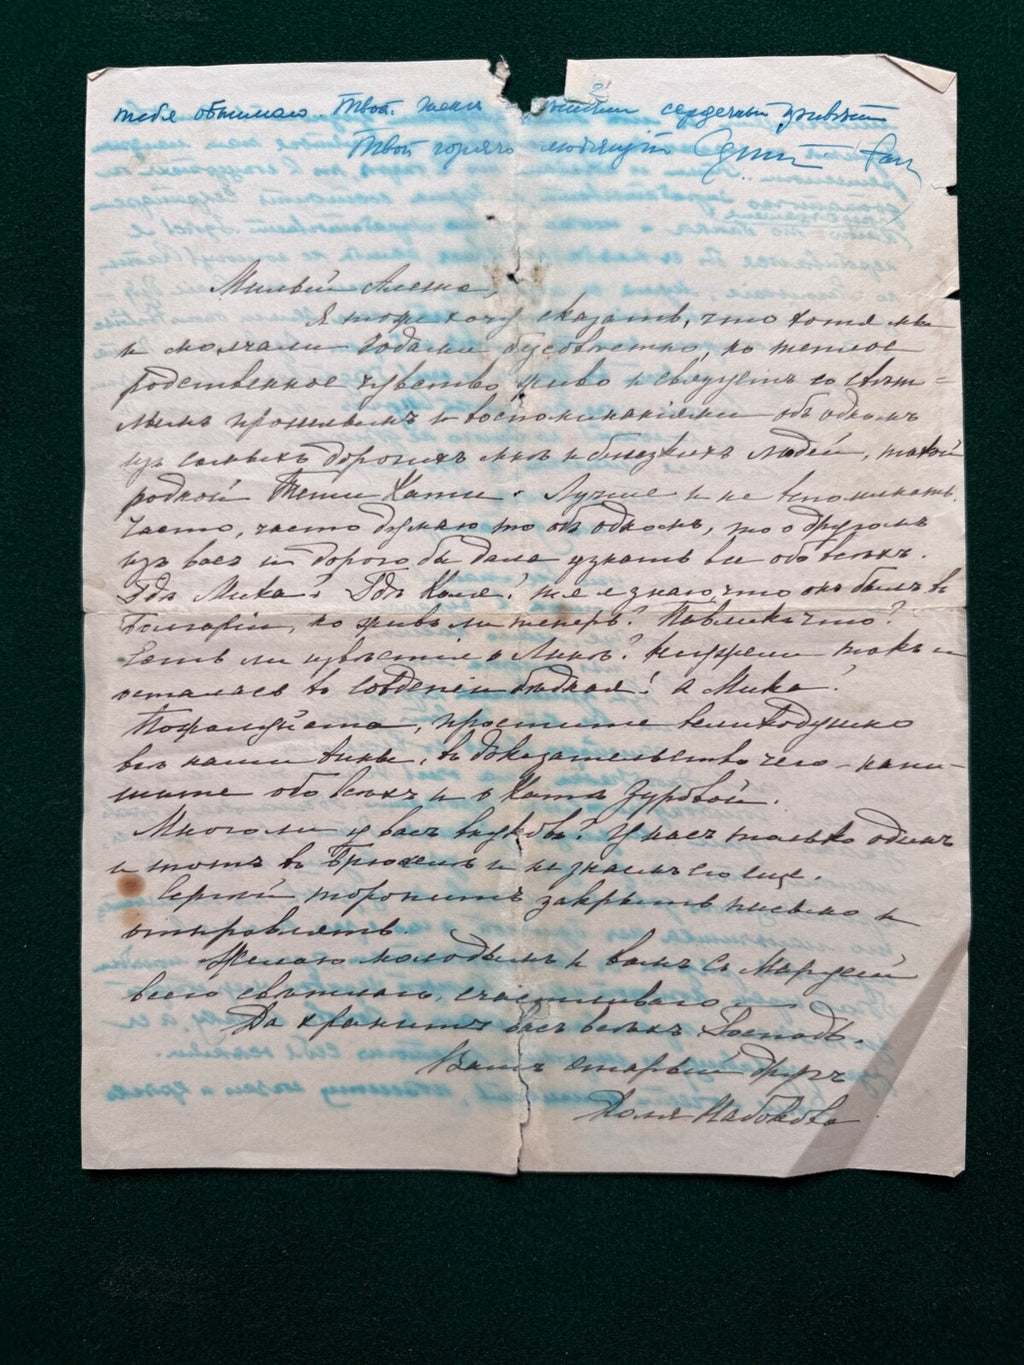 2
тебя обнимаю. Твоей жене сердечный привѣтъ
Твой горячо любящій
Милый Алеша,
Я тоже хочу сказать, что хотя мы
и молчали годами безсовѣстно, но теплое
родственное чувство живо и связуетъ со свѣт=
лымъ прошлымъ и воспоминаніями объ одномъ
изъ самыхъ дорогихъ мнѣ и близкихъ людей, такой
родной Тети Кати. Лучше и не вспоминать.
Часто, часто думаю то объ одномъ, то о другомъ
изъ васъ и дорого бы дала узнать все обо всѣхъ.
Гдѣ Мика? Гдѣ Коля? я знаю, что онъ былъ въ
Болгаріи, но живъ ли теперь? Павликъ что?
Есть ли извѣстія о Аннѣ? Неужели такъ и
осталась въ Совдепіи бѣдная! А Мика?
Пожалуйста, простите великодушно
всѣ наши вины, въ доказательство чего – напи–
шите обо всѣхъ и о Катѣ Зуровой.
Много ли у васъ внуковъ? У насъ только одинъ
и тотъ въ Брюсселѣ и не знаемъ его еще.
Сергѣй торопитъ закрыть письмо и
отправлять
Желаю молодымъ и вамъ съ Марусей
всего свѣтлаго, счастливаго
Да хранитъ васъ всѣхъ Господь.
Вашъ старый другъ
Набокова